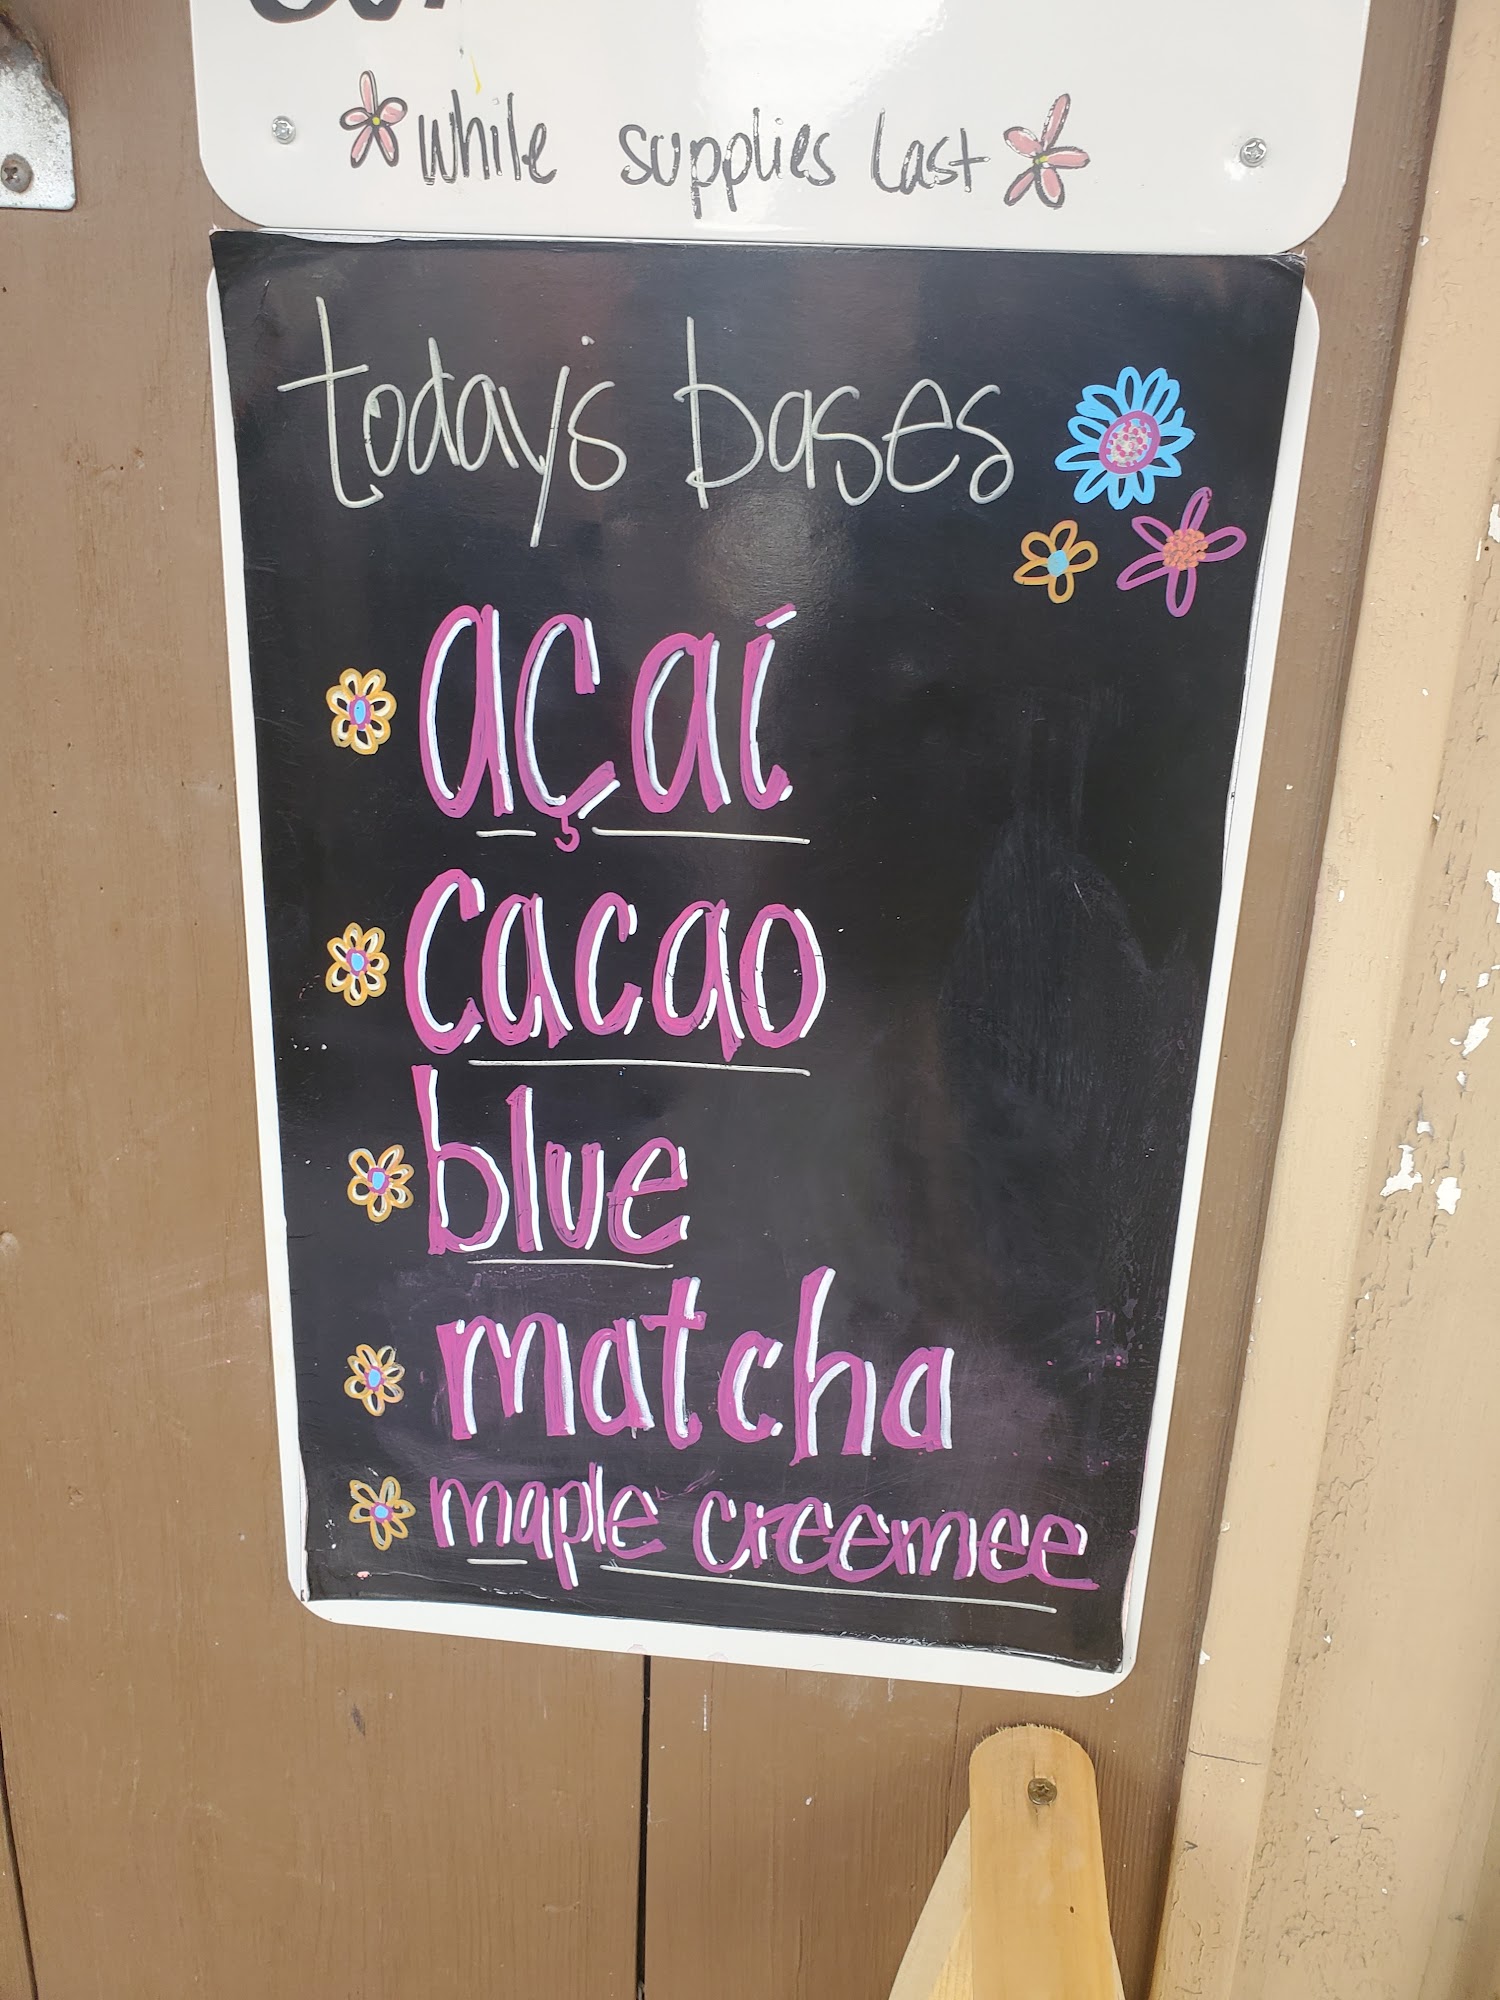 while supplies last
today's bases
açaí
cacao
blue
matcha
maple creemee